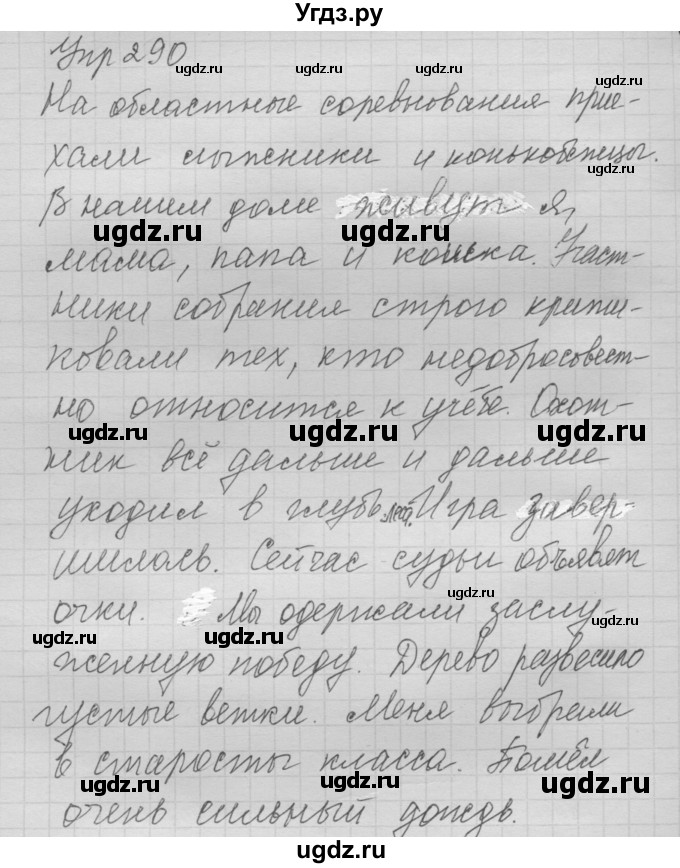 Угдз.ру
Упр 290
ugdz.ru ugdz.ru
На областные соревнования прие-
хали лыжники и конькобежцы.
ugdz.ru
В нашем доме живут я,
ugdz.ru ugdz.ru
мама, папа и кошка. Участ-
ники собрания строго крити-
ugdz.ru
ковали тех, кто недобросовест-
но относится к учёбе. Охот-
ugdz.ru ugdz.ru ugdz.ru
ник всё дальше и дальше
уходил в глубь леса. Игра завер-
шилась. Сейчас судьи объявят
ugdz.ru
очки. Мы одержали заслу-
ugdz.ru ugdz.ru ugdz.ru
женную победу. Дерево развесило
густые ветки. Меня выбрали
ugdz.ru
в старосты класса. Пошёл
очень сильный дождь.
ugdz.ru ugdz.ru
ugdz.ru